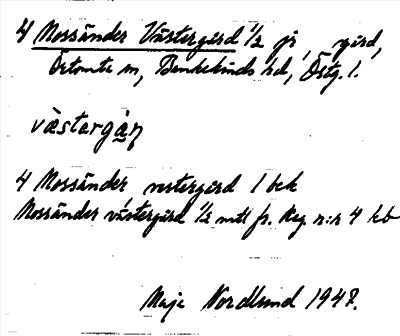 4 Mossänder Västergård 1/2 jr, gård,
Örtomta sn, Bankekinds hd, Östg. l.
västergån
4 Mossänder vestergård 1 bek
Mossänder västergård 1/2 mtl fr. Reg. n:r 4 kb
Maje Nordlund 1947.